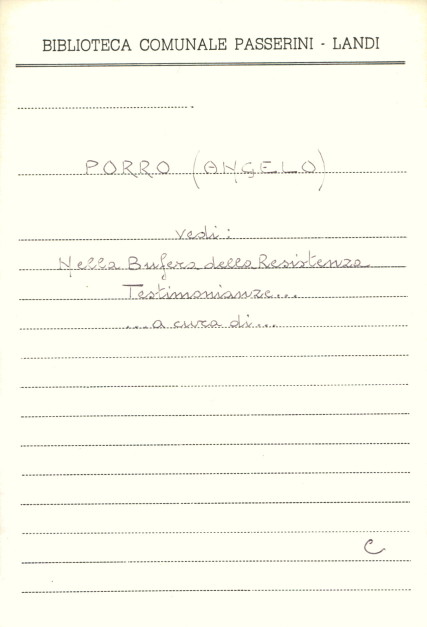 BIBLIOTECA COMUNALE PASSERINI - LANDI
PORRO (ANGELO)
vedi:
Nella Bufera della Resistenza
Testimonianze...
...a cura di...
C